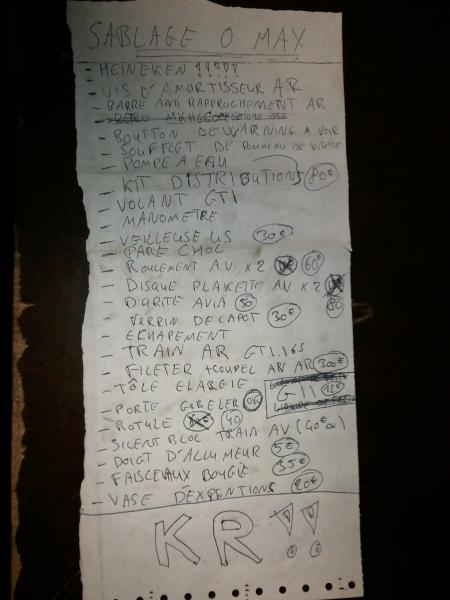 SABLAGE O MAX
- HEINEKEN !!!!!
- VIS D'AMORTISSEUR AR
- BARRE ANTI RAPPROCHEMENT AR
- RETRO
- BOUTTON DE WARNING A VOIR
- SOUFFLET DE POMMEAU DE VITESSE
- POMPE A EAU
- KIT DISTRIBUTIONS 80€
- VOLANT GTI
- MANOMETRE
- VEILLEUSE US 30€
- PARE CHOC
- ROULEMENT AV X 2 60€
- DISQUE PLAKETTE AV X 2 80
- DURITE AVIA 50
- VERRIN DE CAPOT 30€
- ECHAPEMENT
- TRAIN AR GTI 1.6S
- FILETER + COUPEL AV AR 300€
- TÔLE ELARGIE
GTI
- PORTE GOBELER OK
- ROTULE 40
- SILENT BLOC TRAIN AV (40€)
- DOIGT D'ALLUMEUR 5€
- FAISCEAUX BOUGIE 35€
- VASE D'EXPENTIONS 20€
KR !!